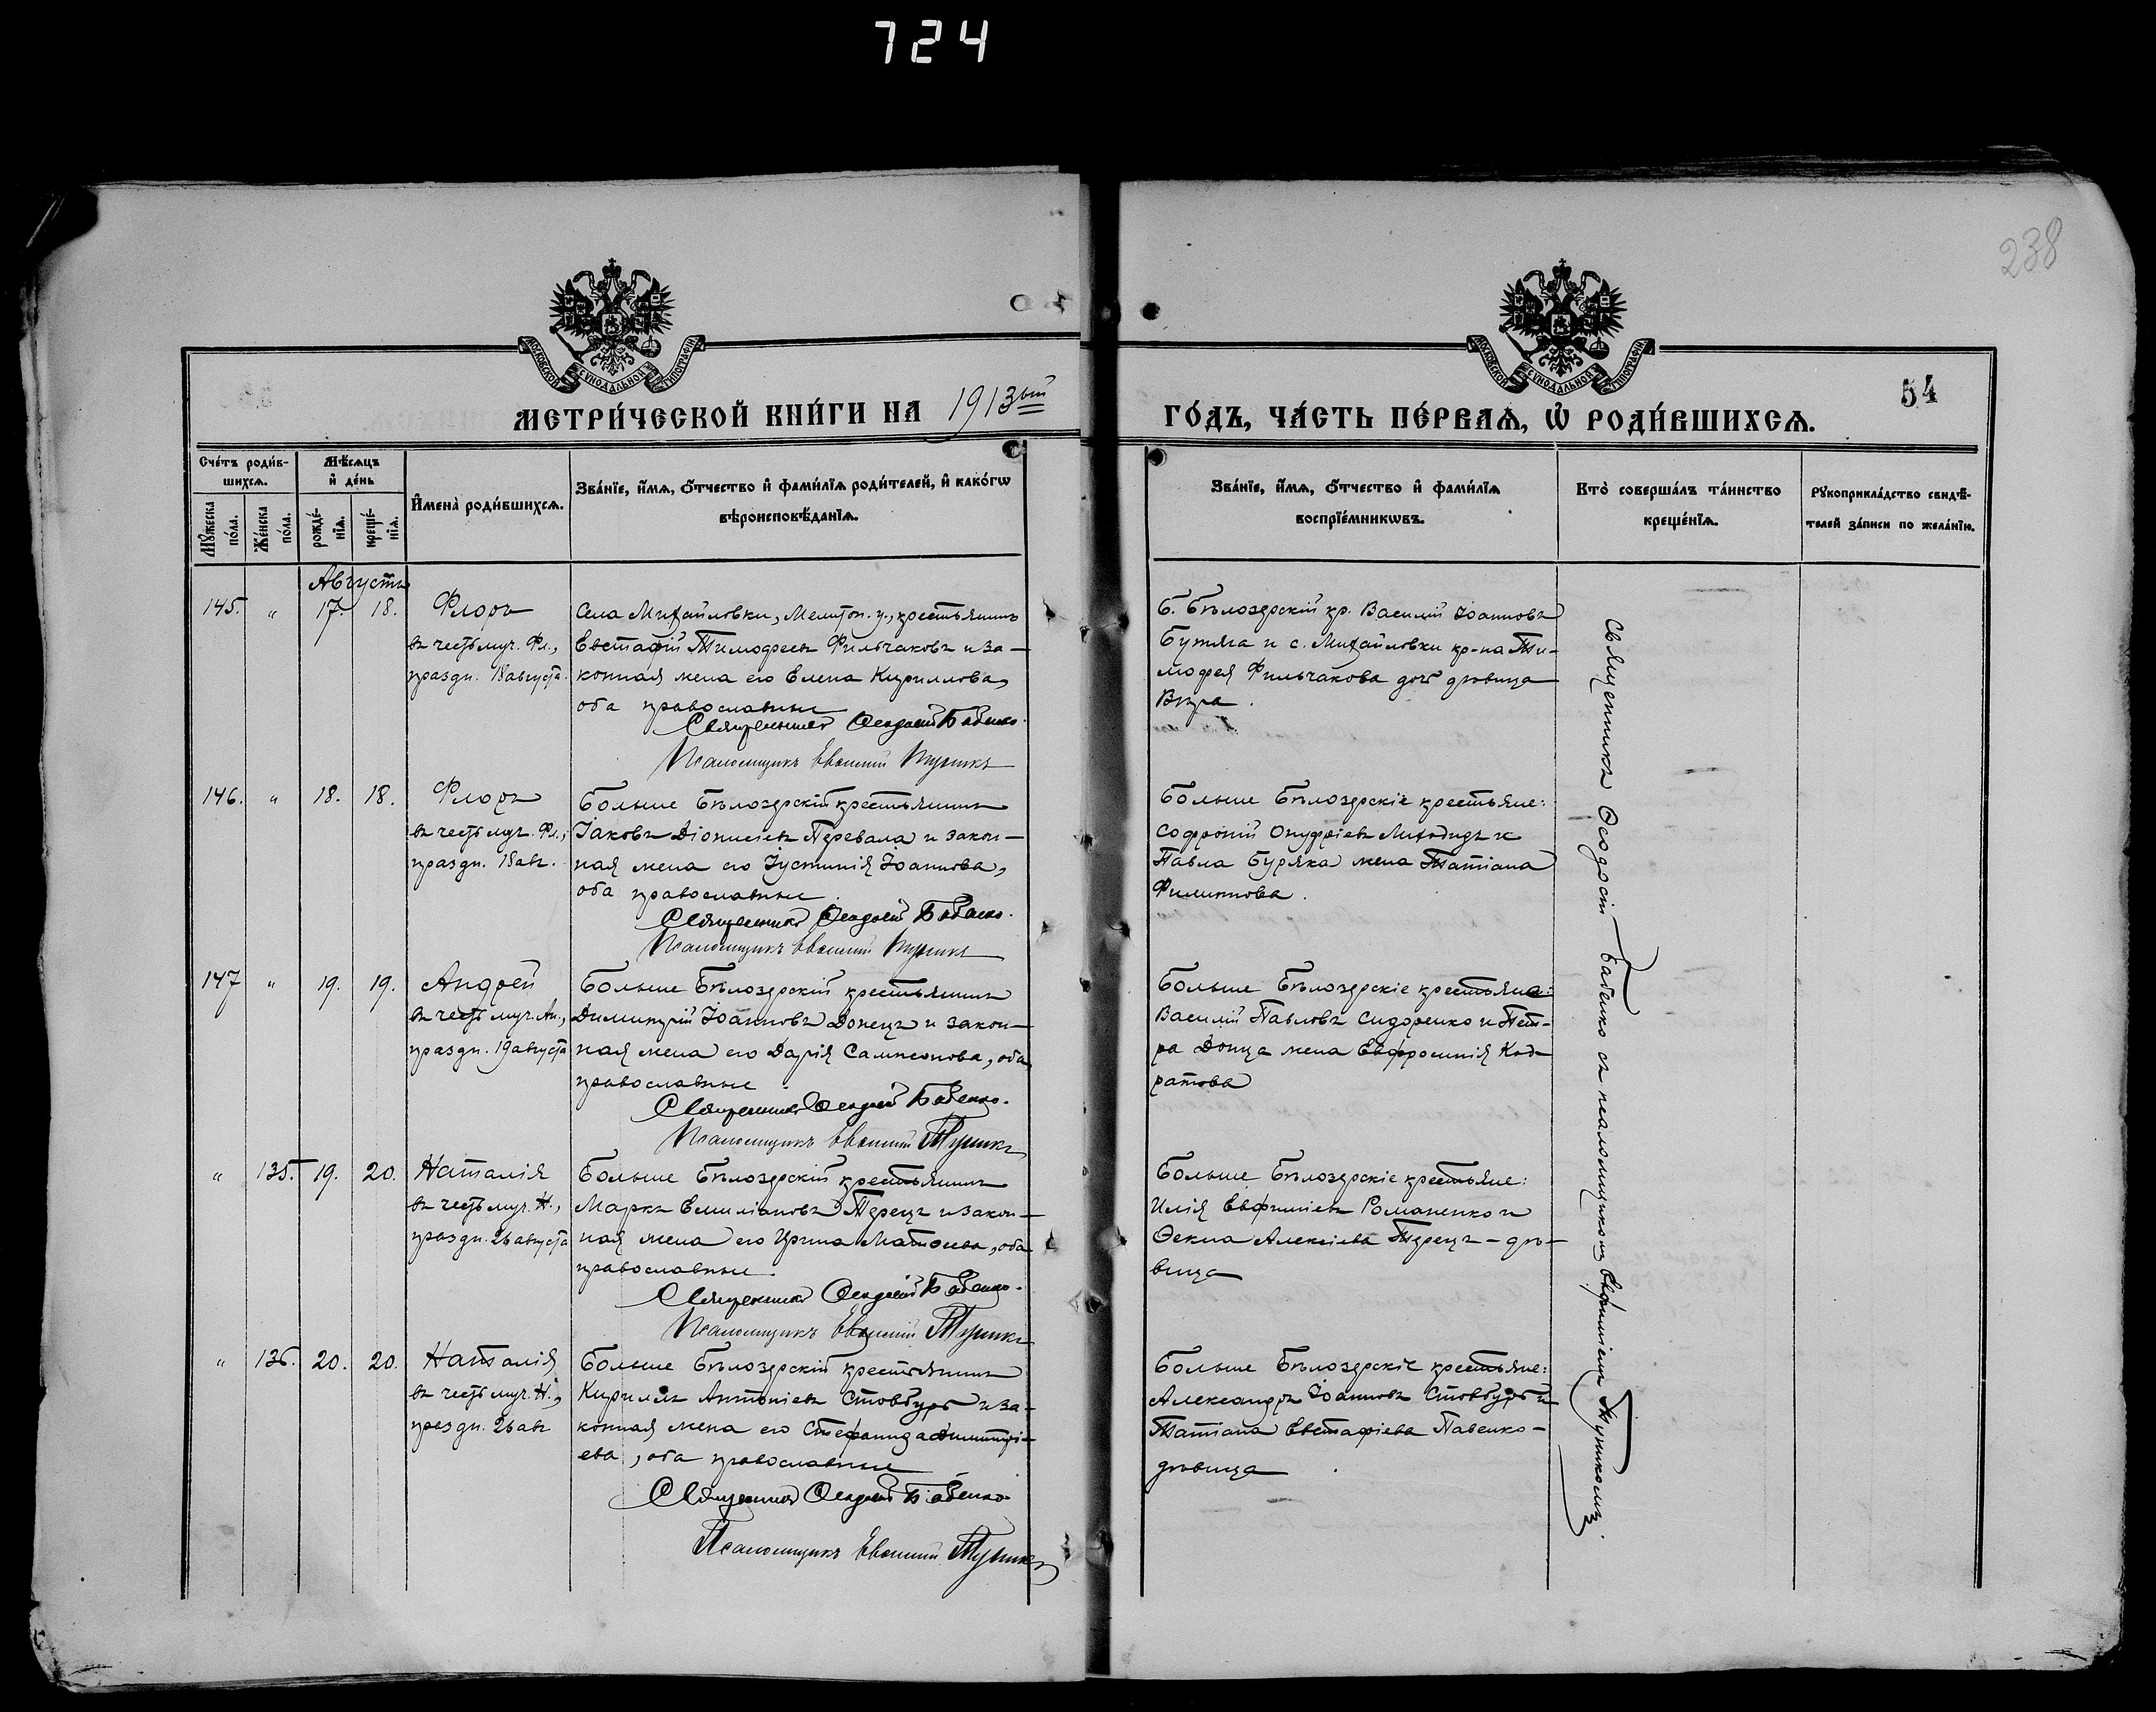 724
238
МОСКОВСКОЙ СѴНОДАЛЬНОЙ ТИПОГРАФІИ
МОСКОВСКОЙ СѴНОДАЛЬНОЙ ТИПОГРАФІИ
54
МЕТРИ́ЧЕСКОЙ КНИ́ГИ НА 1913ый
ГО́ДЪ, ЧА́СТЬ ПЕ́РВАѦ, Ѡ҆ РОДИ́ВШИХСѦ.
Сче́тъ роди́в-
шихсѧ.
Мꙋ́жеска по́ла.
Же́нска по́ла.
Мѣ́сѧцъ
и҆ де́нь
рожде́-нїѧ.
креще́-нїѧ.
И҆мена̀ роди́вшихсѧ.
Зва́нїе, и҆́мѧ, ѻ҆́тчество и҆ фами́лїѧ роди́телей, и҆ како́гѡ
вѣроисповѣ́данїѧ.
Зва́нїе, и҆́мѧ, ѻ҆́тчество и҆ фами́лїѧ
воспрїе́мникѡвъ.
Кто̀ соверша́лъ та́инство
креще́нїѧ.
Рꙋкоприкла́дство свидѣ́-
телей за́писи по жела́нїю.
Августъ
145. " 17. 18. Флоръ
въ честь муч. Фл.,
праздн. 18 августа.
Села Михайловки, Мелитоп. у., крестьянинъ
Евстафій Тимофеевъ Фильчаковъ и за-
конная жена его Елена Кириллова,
оба православные
Священникъ Ѳеодосій Бабенко.
Псаломщикъ Евфимій Тупикъ
Б. Бѣлозерскій кр. Василій Іоанновъ
Бутяга и с. Михайловки кр-на Ти-
мофея Фильчакова дочь дѣвица
Вѣра.
146. " 18. 18. Флоръ
въ честь муч. Фл.,
праздн. 18 авг.
Больше Бѣлозерскій крестьянинъ
Іаковъ Діонисіевъ Перевала и закон-
ная жена его Іустинія Іоаннова,
оба православные
Священникъ Ѳеодосій Бабенко.
Псаломщикъ Евфимій Тупикъ
Больше Бѣлозерскіе крестьяне:
Софроній Онуфріевъ и
Павла Буряка жена Татіана
Филиппова.
147 " 19. 19. Андрей
въ честь муч. Ан.,
праздн. 19 августа
Больше Бѣлозерскій крестьянинъ
Димитрій Іоанновъ Донецъ и закон-
ная жена его Дарія Сампсонова, оба
православные
Священникъ Ѳеодосій Бабенко.
Псаломщикъ Евфимій Тупикъ
Больше Бѣлозерскіе крестьяне:
Василій Павловъ Сидоренко и Пет-
ра Донца жена Евфросинія Код-
ратова
" 135. 19. 20. Наталія
въ честь муч. Н.,
праздн. 26 августа
Больше Бѣлозерскій крестьянинъ
Маркъ Емиліановъ Терецъ и закон-
ная жена его Ирина Матѳеева, оба
православные.
Священникъ Ѳеодосій Бабенко.
Псаломщикъ Евфимій Тупикъ
Больше Бѣлозерскіе крестьяне:
Илія Евфиміевъ Романенко и
Ѳекла Алексіева Терецъ - дѣ-
вица
" 136. 20. 20. Наталія
въ честь муч. Н.,
праздн. 26 авг
Больше Бѣлозерскій крестьянинъ
Кириллъ Антоніевъ Стовбуръ и за-
конная жена его Стефанида Димитрі-
ева, оба православные
Священникъ Ѳеодосій Бабенко
Псаломщикъ Евфимій Тупикъ
Больше Бѣлозерскіе крестьяне:
Александръ Іоанновъ Стовбуръ и
Татіана Евстафіева Павенко -
дѣвица
Священникъ Ѳеодосій Бабенко съ псаломщикомъ Евфиміемъ Тупикомъ.